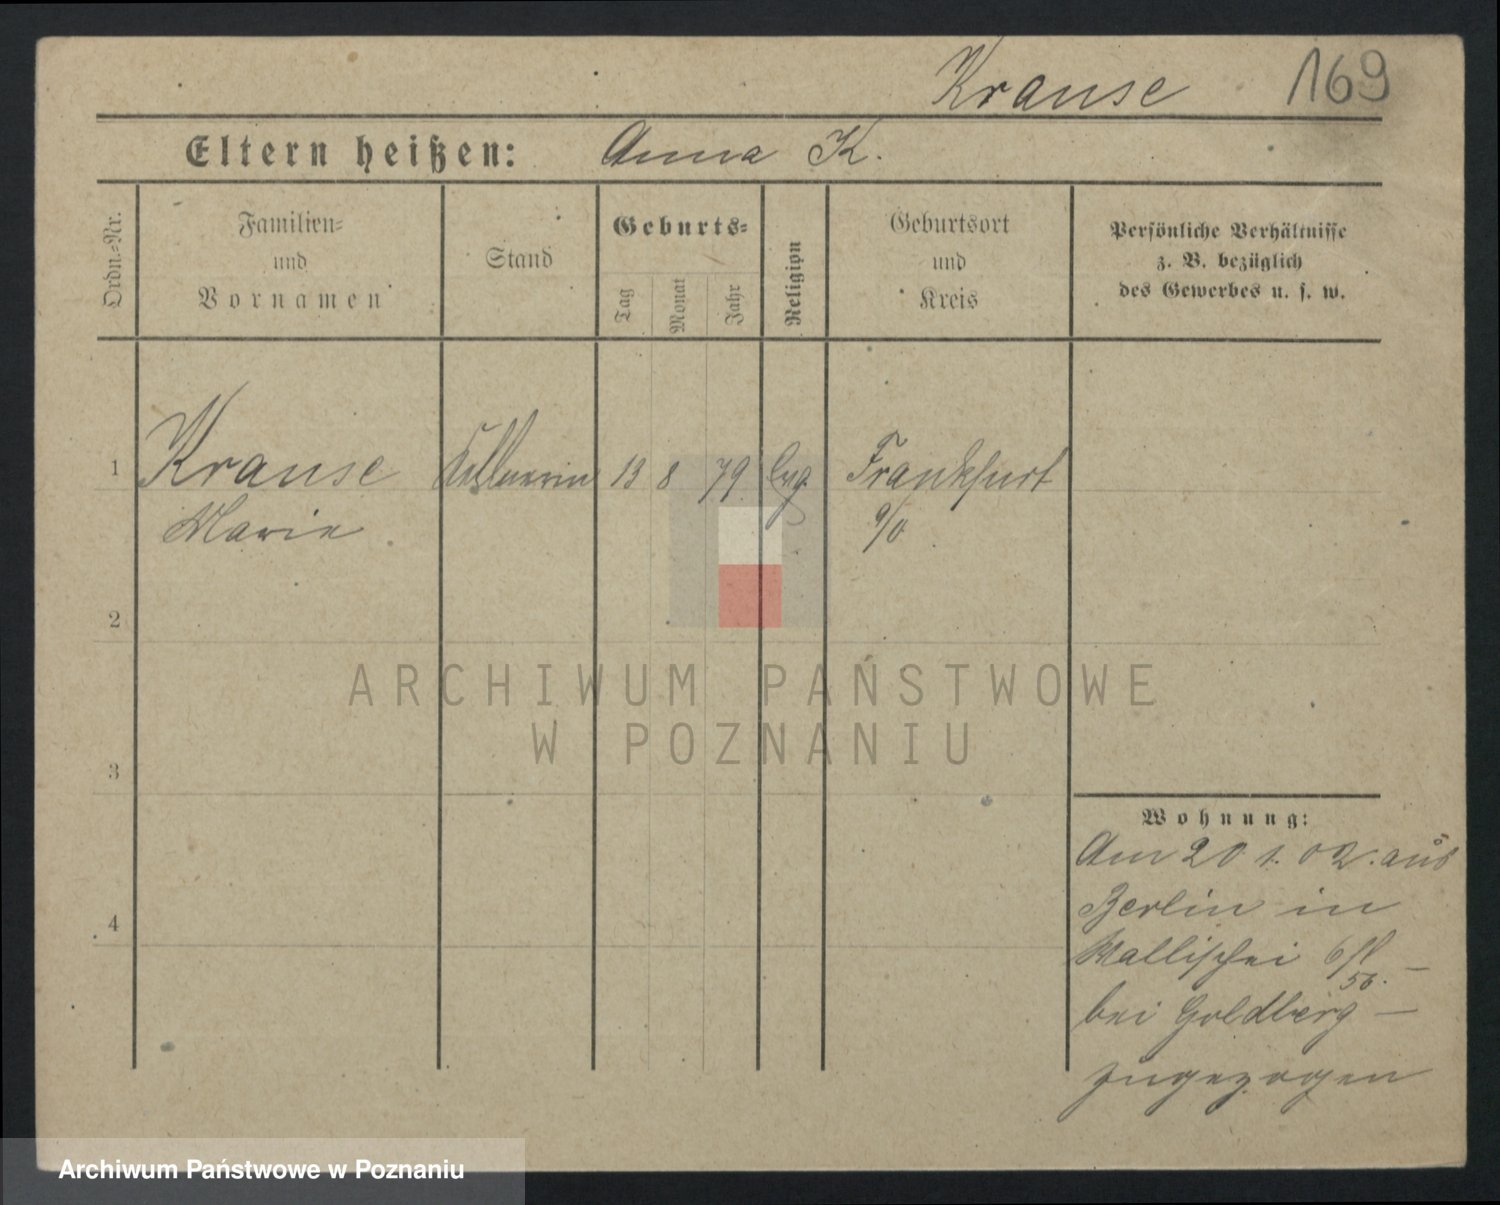 Krause 169
Eltern heißen: Anna K.
Ordn.-Nr.
Familien-
und
Vornamen
Stand
Geburts-
Tag
Monat
Jahr
Religion
Geburtsort
und
Kreis
Persönliche Verhältnisse
z. B. bezüglich
des Gewerbes u. s. w.
1 Krause Kellnerin 13 8 79 Evg. Frankfurt
Marie a/O
2
ARCHIWUM PAŃSTWOWE
W POZNANIU
3
Wohnung:
Am 20 1. 02. aus
Berlin in
4
Wallischei
56.
bei Goldberg —
zugezogen
Archiwum Państwowe w Poznaniu